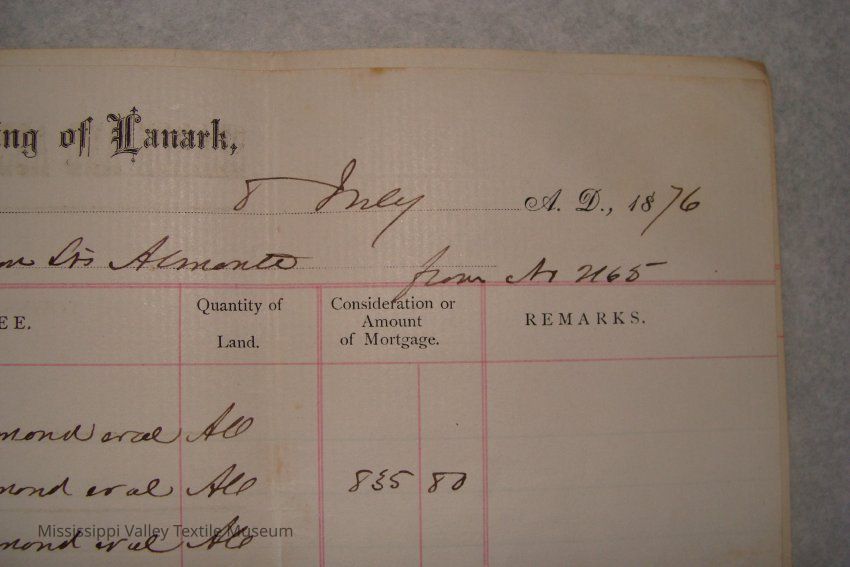 ing of Lanark,
8 July A. D., 1876
on Sts Almonte from No 2165
EE.
Quantity of Land.
Consideration or Amount of Mortgage.
REMARKS.
mond et al All
mond et al All 835 80
mond et al All
Mississippi Valley Textile Museum